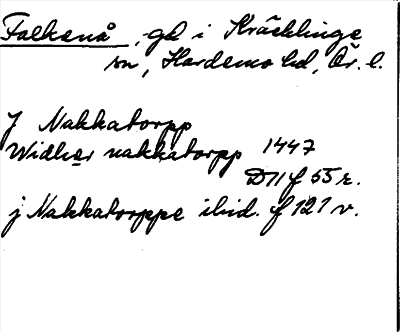 Falkenå, gd i Kräcklinge
sn, Hardemo hd, Ör. l.
J Nakkatorpp
Widher nakkatorpp 1447
D 11 f 55 r.
j Nakkatorppe ibid. f 121 v.